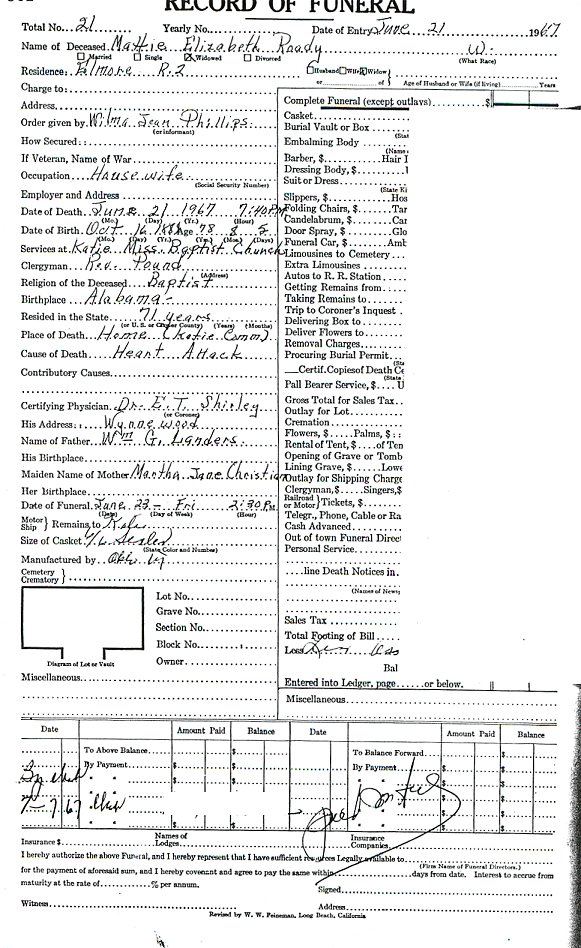 RECORD OF FUNERAL
Total No. 21 Yearly No. Date of Entry June 21 1967
Name of Deceased Mattie Elizabeth Roady W.
Married Single Widowed Divorced (What Race)
Residence: Elmore R.2 Husband Wife Widow
or of Age of Husband or Wife (if living) Years
Charge to:
Address
Order given by Wilma Jean Phillips
(or informant)
How Secured:
If Veteran, Name of War
Occupation Housewife
(Social Security Number)
Employer and Address
Date of Death June 21 1967 7:40 PM
(Mo.) (Day) (Yr.) (Hour)
Date of Birth Oct 16 1888 Age 78 8 5
(Mo.) (Day) (Yr.) (Yrs.) (Mos.) (Days)
Services at Katie Miss. Baptist Church
Clergyman Rev. Pound
(Address)
Religion of the Deceased Baptist
Birthplace Alabama
Resided in the State 71 years
(or U.S. or City or County) (Years) (Months)
Place of Death Home (Katie Comm)
Cause of Death Heart Attack
Contributory Causes
Certifying Physician Dr. E. T. Shirley
(or Coroner)
His Address: Wynnewood
Name of Father Wm G. Landers
His Birthplace
Maiden Name of Mother Martha Jane Christian
Her Birthplace
Date of Funeral June 23 - Fri 2:30 P.M.
(Date) (Day of Week) (Hour)
Motor Ship } Remains to
Size of Casket Sealer
(State Color and Number)
Manufactured by
Cemetery
Crematory }
Lot No.
Grave No.
Section No.
Block No.
Owner
Diagram of Lot or Vault
Miscellaneous
Complete Funeral (except outlays) $
Casket
Burial Vault or Box
(Stat
Embalming Body
(Name
Barber, $ Hair I
Dressing Body, $
Suit or Dress
(State Ki
Slippers, $ Hos
Folding Chairs, $ Tar
Candelabrum, $ Car
Door Spray, $ Glo
Funeral Car, $ Amb
Limousines to Cemetery
Extra Limousines
Autos to R. R. Station
Getting Remains from
Taking Remains to
Trip to Coroner's Inquest
Delivering Box to
Deliver Flowers to
Removal Charges
Procuring Burial Permit
(Sta
Certif. Copies of Death Ce
(State
Pall Bearer Service, $ U
Gross Total for Sales Tax
Outlay for Lot
Cremation
Flowers, $ Palms, $
Rental of Tent, $ of Ten
Opening of Grave or Tomb
Lining Grave, $ Lowe
Outlay for Shipping Charge
Clergyman, $ Singers, $
Railroad or Motor } Tickets, $
Telegr., Phone, Cable or Ra
Cash Advanced
Out of town Funeral Direc
Personal Service
line Death Notices in
(Names of News
Sales Tax
Total Footing of Bill
Less
Bal
Entered into Ledger, page or below.
Miscellaneous
Date Amount Paid Balance Date Amount Paid Balance
To Above Balance $ To Balance Forward $
By Payment $ By Payment $
" " $
7-7-67 " " $
Insurance $ Names of Lodges Insurance Companies
I hereby authorize the above Funeral, and I hereby represent that I have sufficient resources Legally available to
(Firm Name of Funeral Directors.)
for the payment of aforesaid sum, and I hereby covenant and agree to pay the same within days from date. Interest to accrue from
maturity at the rate of % per annum. Signed
Witness Address
Revised by W. W. Feineman, Long Beach, California